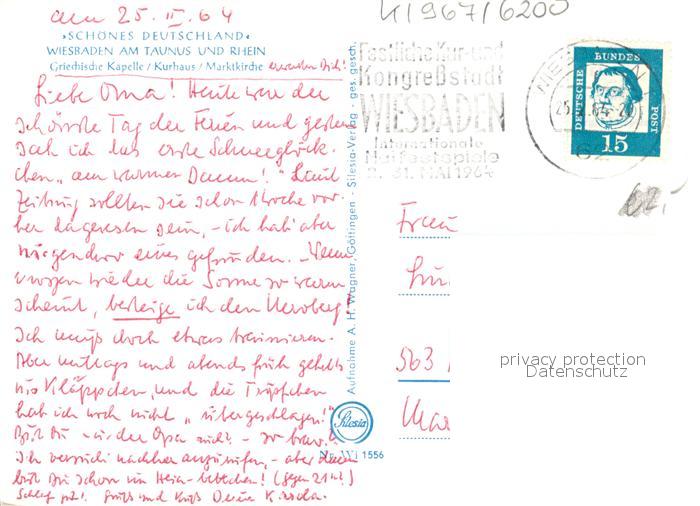 am 25. II. 64
»SCHÖNES DEUTSCHLAND«
WIESBADEN AM TAUNUS UND RHEIN
Griechische Kapelle / Kurhaus / Marktkirche
Liebe Oma! Heute war der
schönste Tag der Ferien und gestern
sah ich das erste Schneeglöck-
chen „am warmen Damm!" Laut
Zeitung sollten die schon 1 Woche vor-
her dagewesen sein, - ich hab' aber
nirgendwo eines gefunden. - Wenn
morgen wieder die Sonne so warm
scheint, besteige ich den Neroberg
Ich muß doch etwas trainieren.
Aber mittags und abends früh gehts
ins Kläppchen, und die Tröpfchen
hab ich noch nicht „übergeschlagen!"
Bist Du - und der Opa auch? - so brav?
Ich versuch nachher anzurufen, - aber dann
bist Du schon im Heia-bettchen! (gegen 21 Uhr!)
Schlaf gut! Gruß und Kuß Deine
Aufnahme A. H. Wagner, Göttingen - Silesia-Verlag - ges. gesch.
Silesia
Nr. Wi 1556
K1967/6200
Festliche Kur- und
Kongreßstadt
WIESBADEN
Internationale
Maifestspiele
2.-31. MAI 1964
DEUTSCHE BUNDES POST
15
62,-
Frau
563
privacy protection
Datenschutz